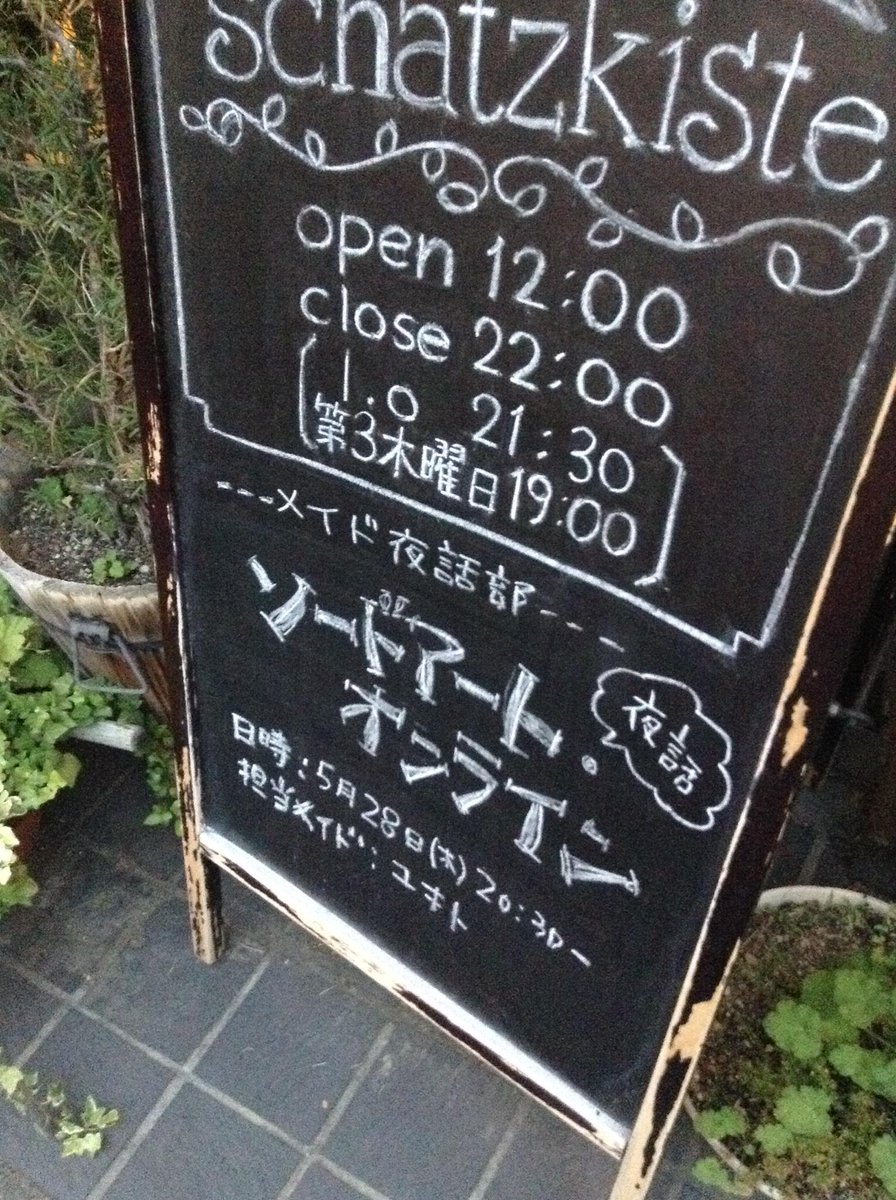 schatzkiste
open 12:00
close 22:00
l.o 21:30
第3木曜日19:00
---メイド夜話部---
ソードアート・
オンライン
夜話
日時:5月28日(木)20:30~
担当メイド:ユキト